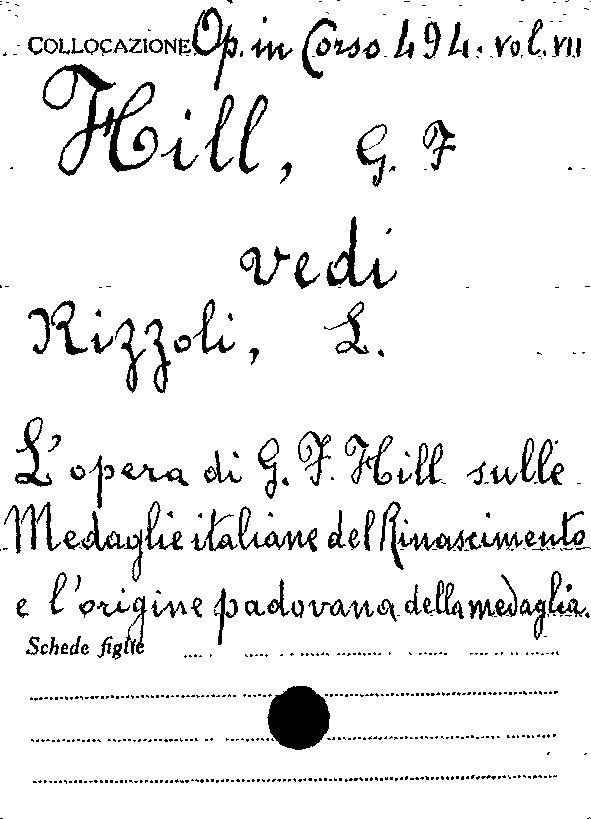 COLLOCAZIONE Op. in Corso 494. vol. VII
Hill, G. F
vedi
Rizzoli, L.
L'opera di G. F. Hill sulle
Medaglie italiane del Rinascimento
e l'origine padovana della medaglia.
Schede figlie